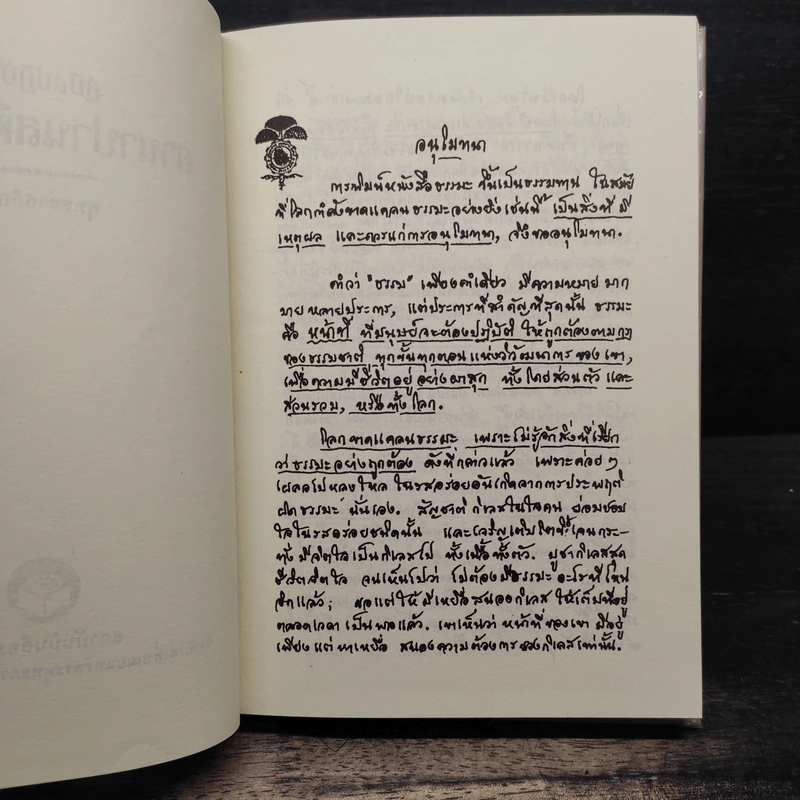 อนุโมทนา
การพิมพ์หนังสือธรรมะ ขึ้นเป็นธรรมทาน ในสมัย
ที่โลกกำลังขาดแคลนธรรมะอย่างยิ่งเช่นนี้ เป็นสิ่งที่ มี
เหตุผล และควรแก่การอนุโมทนา, จึงขออนุโมทนา.
คำว่า "ธรรม" เพียงคำเดียว มีความหมาย มาก
มาย หลายประการ, แต่ประการที่สำคัญที่สุดนั้น ธรรมะ
คือ หน้าที่ ที่มนุษย์จะต้องปฏิบัติ ให้ถูกต้องตามกฎ
ของธรรมชาติ ทุกขั้นทุกตอนแห่งวิวัฒนาการ ของเขา,
เพื่อความมีชีวิตอยู่ อย่างผาสุก ทั้งโดยส่วนตัว และ
ส่วนรวม, หรือทั้งโลก.
โลกขาดแคลนธรรมะ เพราะไม่รู้จักสิ่งที่เรียก
ว่าธรรมะอย่างถูกต้อง ดังที่กล่าวแล้ว เพราะค่อยๆ
เผลอไปหลงใหล ในรสอร่อยอันเกิดจากการประพฤติ
ผิดธรรมะ นั่นเอง. สัญชาติ กิเลสในใจคน ย่อมชอบ
ใจในรสอร่อยชนิดนั้น และเจริญเติบโตขึ้นจนกระ-
ทั่ง มีจิตใจเป็นกิเลสไป ทั้งเนื้อทั้งตัว. บูชากิเลสสุด
ชีวิตจิตใจ จนเห็นไปว่า ไม่ต้องมีธรรมะ อะไรที่ไหน
อีกแล้ว; ขอแต่ให้มีเหยื่อสนองกิเลส ให้เต็มที่อยู่
ตลอดเวลา เป็นพอแล้ว. เขาเห็นว่า หน้าที่ของเขา มีอยู่
เพียงแต่ หาเหยื่อ สนองความต้องการ ของกิเลสเท่านั้น.